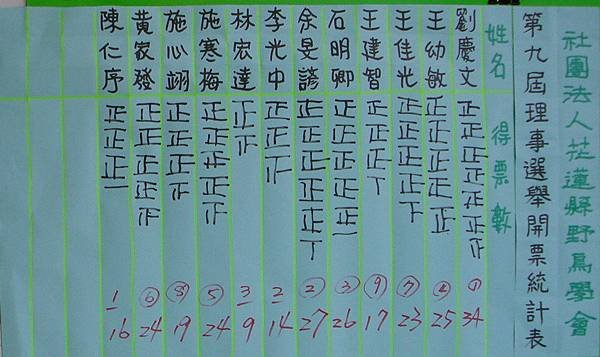 社團法人花蓮縣野鳥學會
第九屆理事選舉開票統計表
姓名 得票數
劉慶文 正正正正正正 ① 34
王幼敏 正正正正正 ④ 25
王佳光 正正正正下 ⑦ 23
王建智 正正正丅 ⑨ 17
石明卿 正正正正正一 ③ 26
余旻諺 正正正正正丅 ② 27
李光中 正正 2 14
林宏達 正 3 9
施寒梅 正正正正 ⑤ 24
施心翊 正正正 ⑧ 19
黃家發 正正正正 ⑥ 24
陳仁序 正正正一 1 16